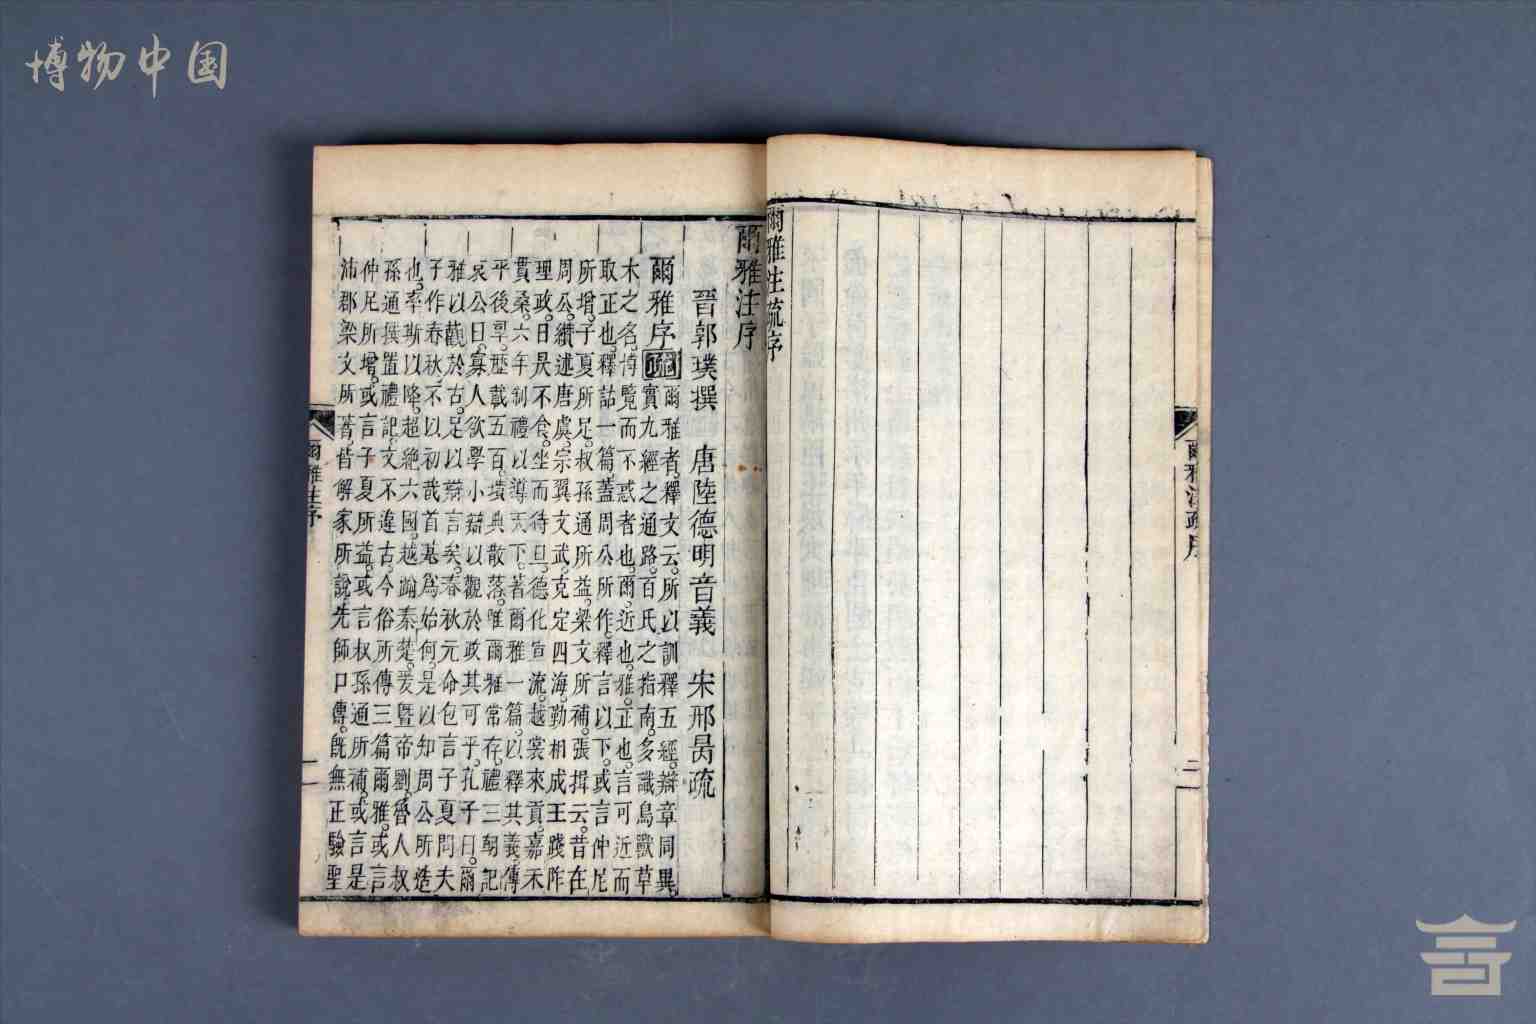 博物中国
爾雅注疏序
爾雅注疏序
二
爾雅注序
晉郭璞撰 唐陸德明音義 宋邢昺疏
爾雅序疏爾雅者。釋文云。所以訓釋五經。辯章同異。
實九經之通路。百氏之指南。多識鳥獸草
木之名。博覽而不惑者也。爾近也。雅正也。言可近而
取正也。釋詁一篇。蓋周公所作。釋言以下。或言仲尼
所增。子夏所足。叔孫通所益。梁文所補。張揖云。昔在
周公。纘述唐虞。宗翼文武。克定四海。勤相成王。踐阼
理政。日昃不食。坐而待旦。德化宣流。越裳來貢。嘉禾
貫桑。六年制禮。以導天下。著爾雅一篇。以釋其義。傳
乎後。歷載五百。墳典散落。唯爾雅常存。禮三朝記。
哀公曰。寡人欲學小辯。以觀於政。其可乎。孔子曰。爾
雅以觀於古。足以辯言矣。春秋元命包言子夏問夫
子作春秋。不以初哉首基爲始何。是以知周公所造
也。率斯以降。超絕六國。越踰秦楚。爰曁帝劉。魯人叔
孫通撰置禮記。文不違古。今俗所傳三篇爾雅。或言
仲尼所增。或言子夏所益。或言叔孫通所補。或言是
沛郡梁文所著。皆解家所說。先師口傳。既無正驗。聖
爾雅注序
一